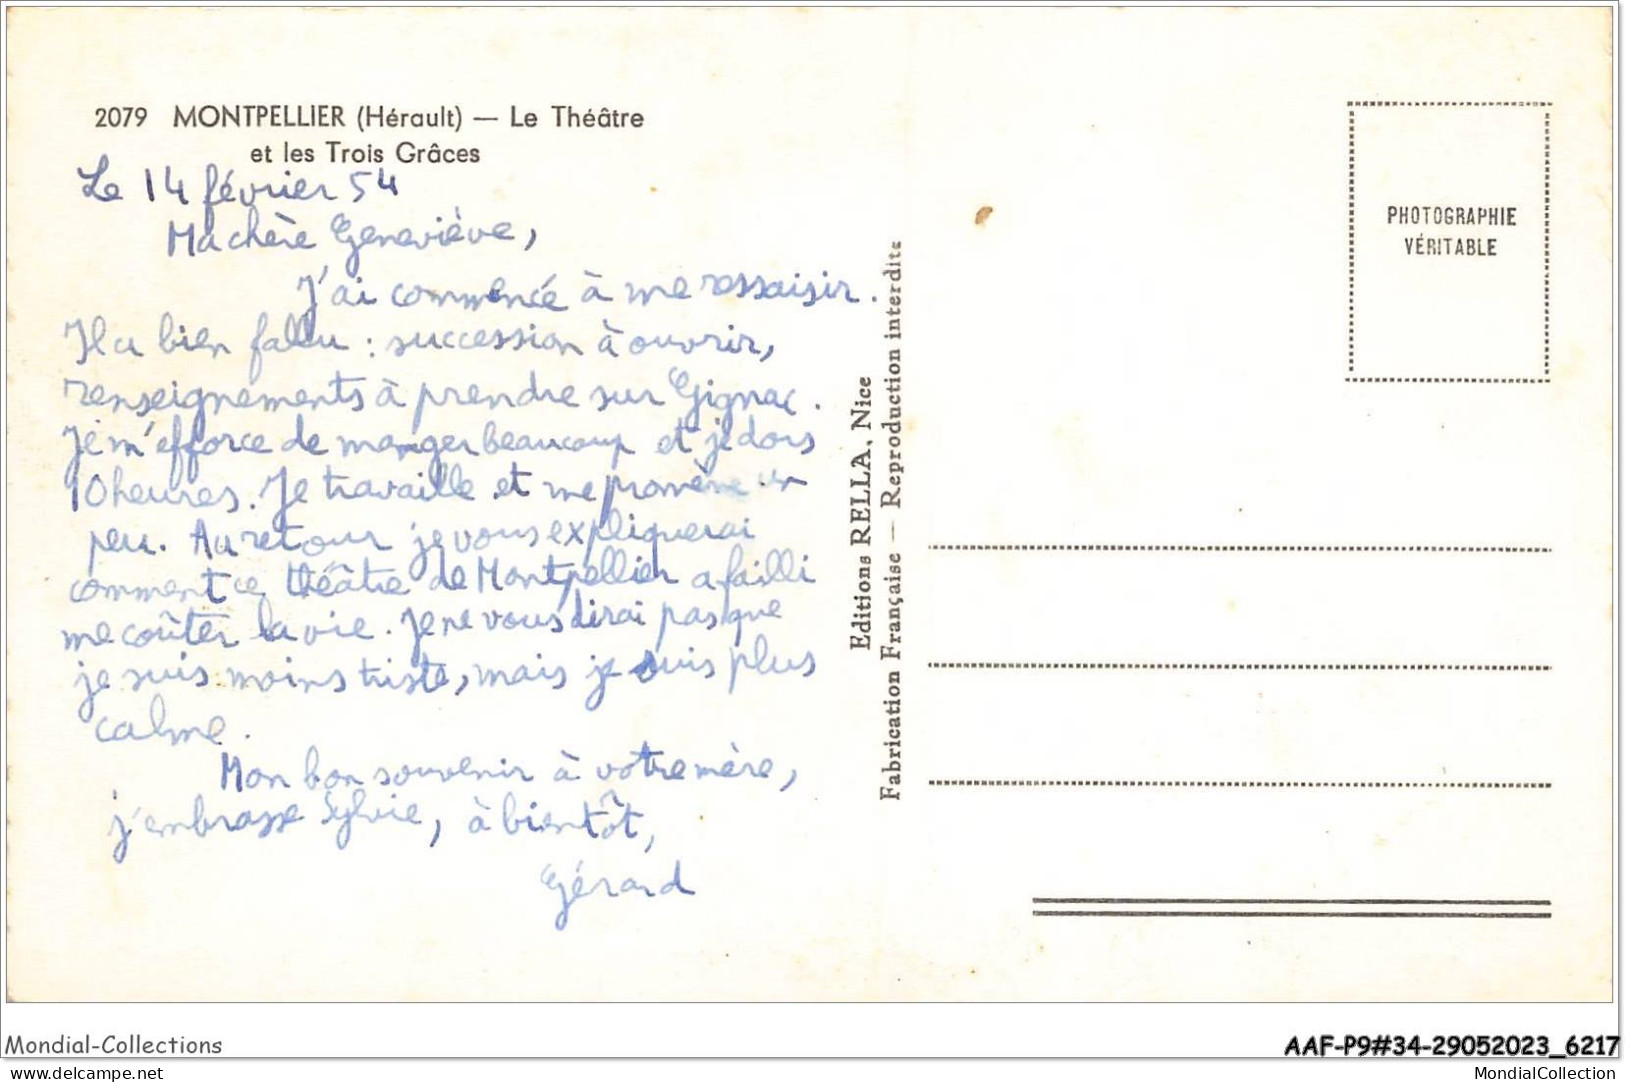 2079 MONTPELLIER (Hérault) — Le Théâtre
et les Trois Grâces
Le 14 février 54
Ma chère Geneviève,
J'ai commencé à me ressaisir.
Il a bien fallu : succession à ouvrir,
renseignements à prendre sur Gignac.
Je m'efforce de manger beaucoup et je dors
10 heures. Je travaille et me promène un
peu. Au retour je vous expliquerai
comment ce théâtre de Montpellier a failli
me coûter la vie. Je ne vous dirai pas que
je suis moins triste, mais je suis plus
calme.
Mon bon souvenir à votre mère,
j'embrasse Sylvie, à bientôt,
Gérard
Editions RELLA, Nice
Fabrication Française — Reproduction interdite
PHOTOGRAPHIE
VÉRITABLE
Mondial-Collections
AAF-P9#34-29052023_6217
delcampe.net
MondialCollection